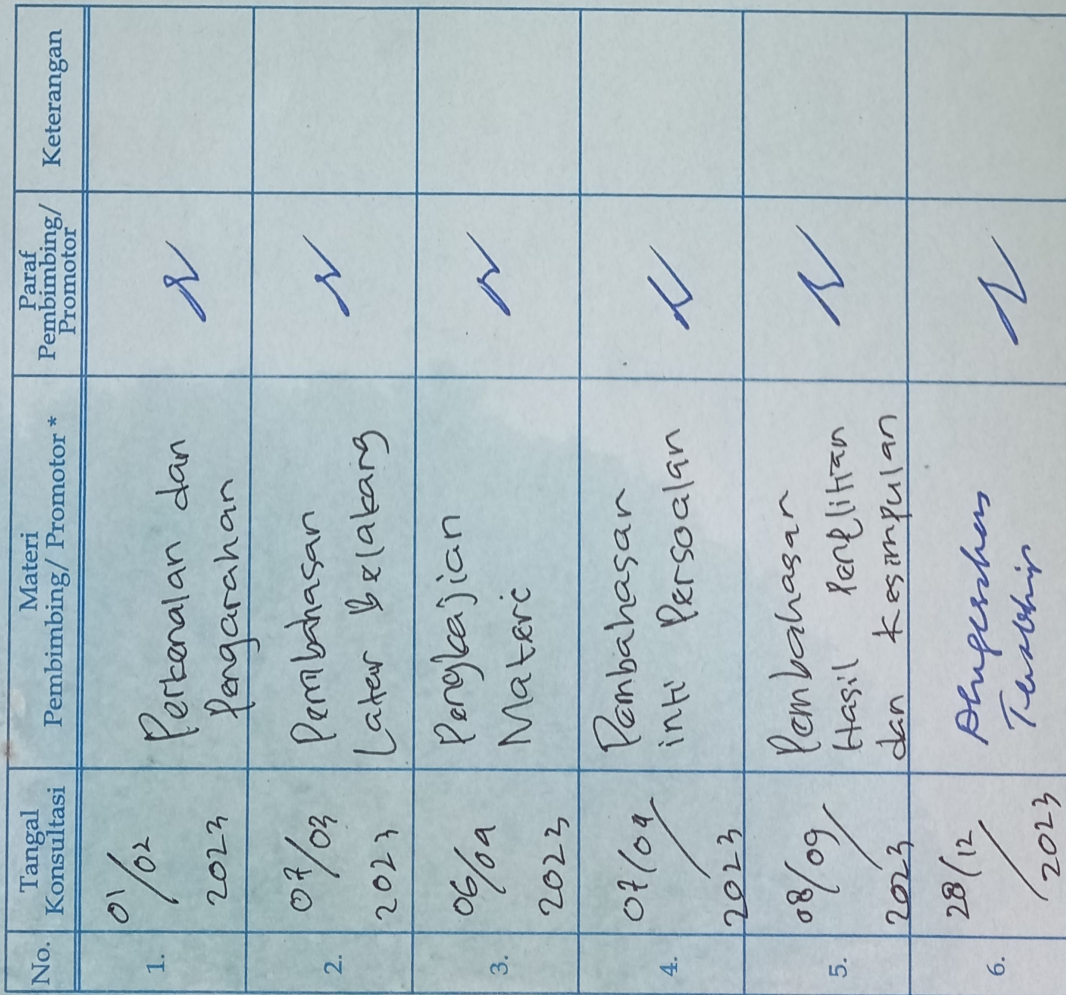 No.
Tangal
Konsultasi
Materi
Pembimbing/ Promotor *
Paraf
Pembimbing/
Promotor
Keterangan
1.
01/02
2023
Perkenalan dan
Pengarahan
2.
07/03
2023
Pembahasan
Latar Belakang
3.
06/09
2023
Pengkajian
Materi
4.
07/09
2023
Pembahasan
inti Persoalan
5.
08/09
2023
Pembahasan
Hasil Penelitian
dan kesimpulan
6.
28/12
2023